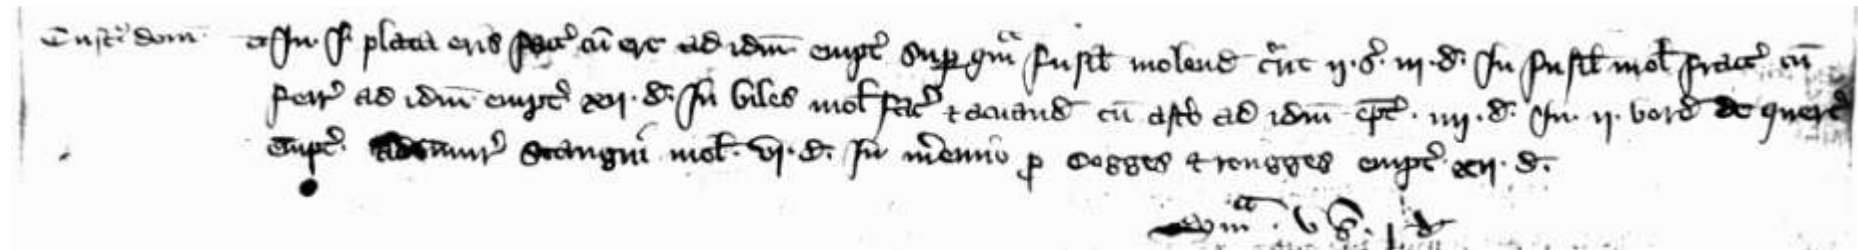 Cust' dom' In j placia eris fact' cu' ere ad idm empt' sup qua fusill molend' curr' ij. s'. iij. d'. In fusill mol' fract' cu'
ferr' ad idm empt' xij. d'. In biles mol' fac' & acuand' cu' ad idm ept'. iiij. d'. In. ij. bord' de querc'
empt'. stangni mol'. vj. d'. In m'emio p cogges & rongges empt' xij. d'.
Sma. v s'. j d'